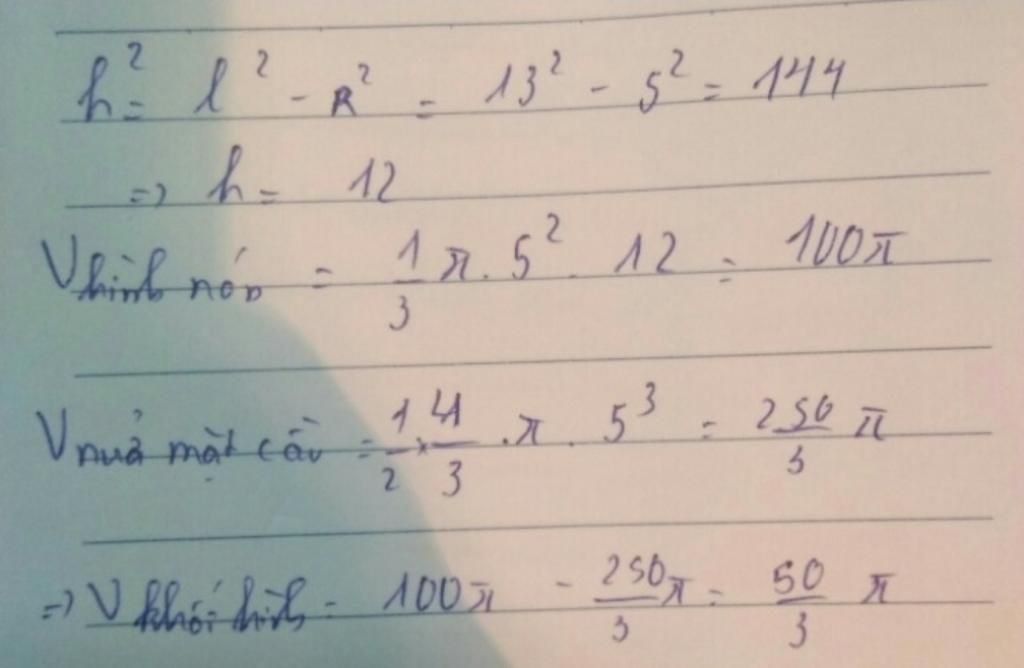 h² = l² - R² = 13² - 5² = 144
=> h = 12
V hình nón = 1/3 π . 5² . 12 = 100π
V nửa mặt cầu = 1/2 × 4/3 . π . 5³ = 250/3 π
=> V khối hình = 100π - 250/3 π = 50/3 π